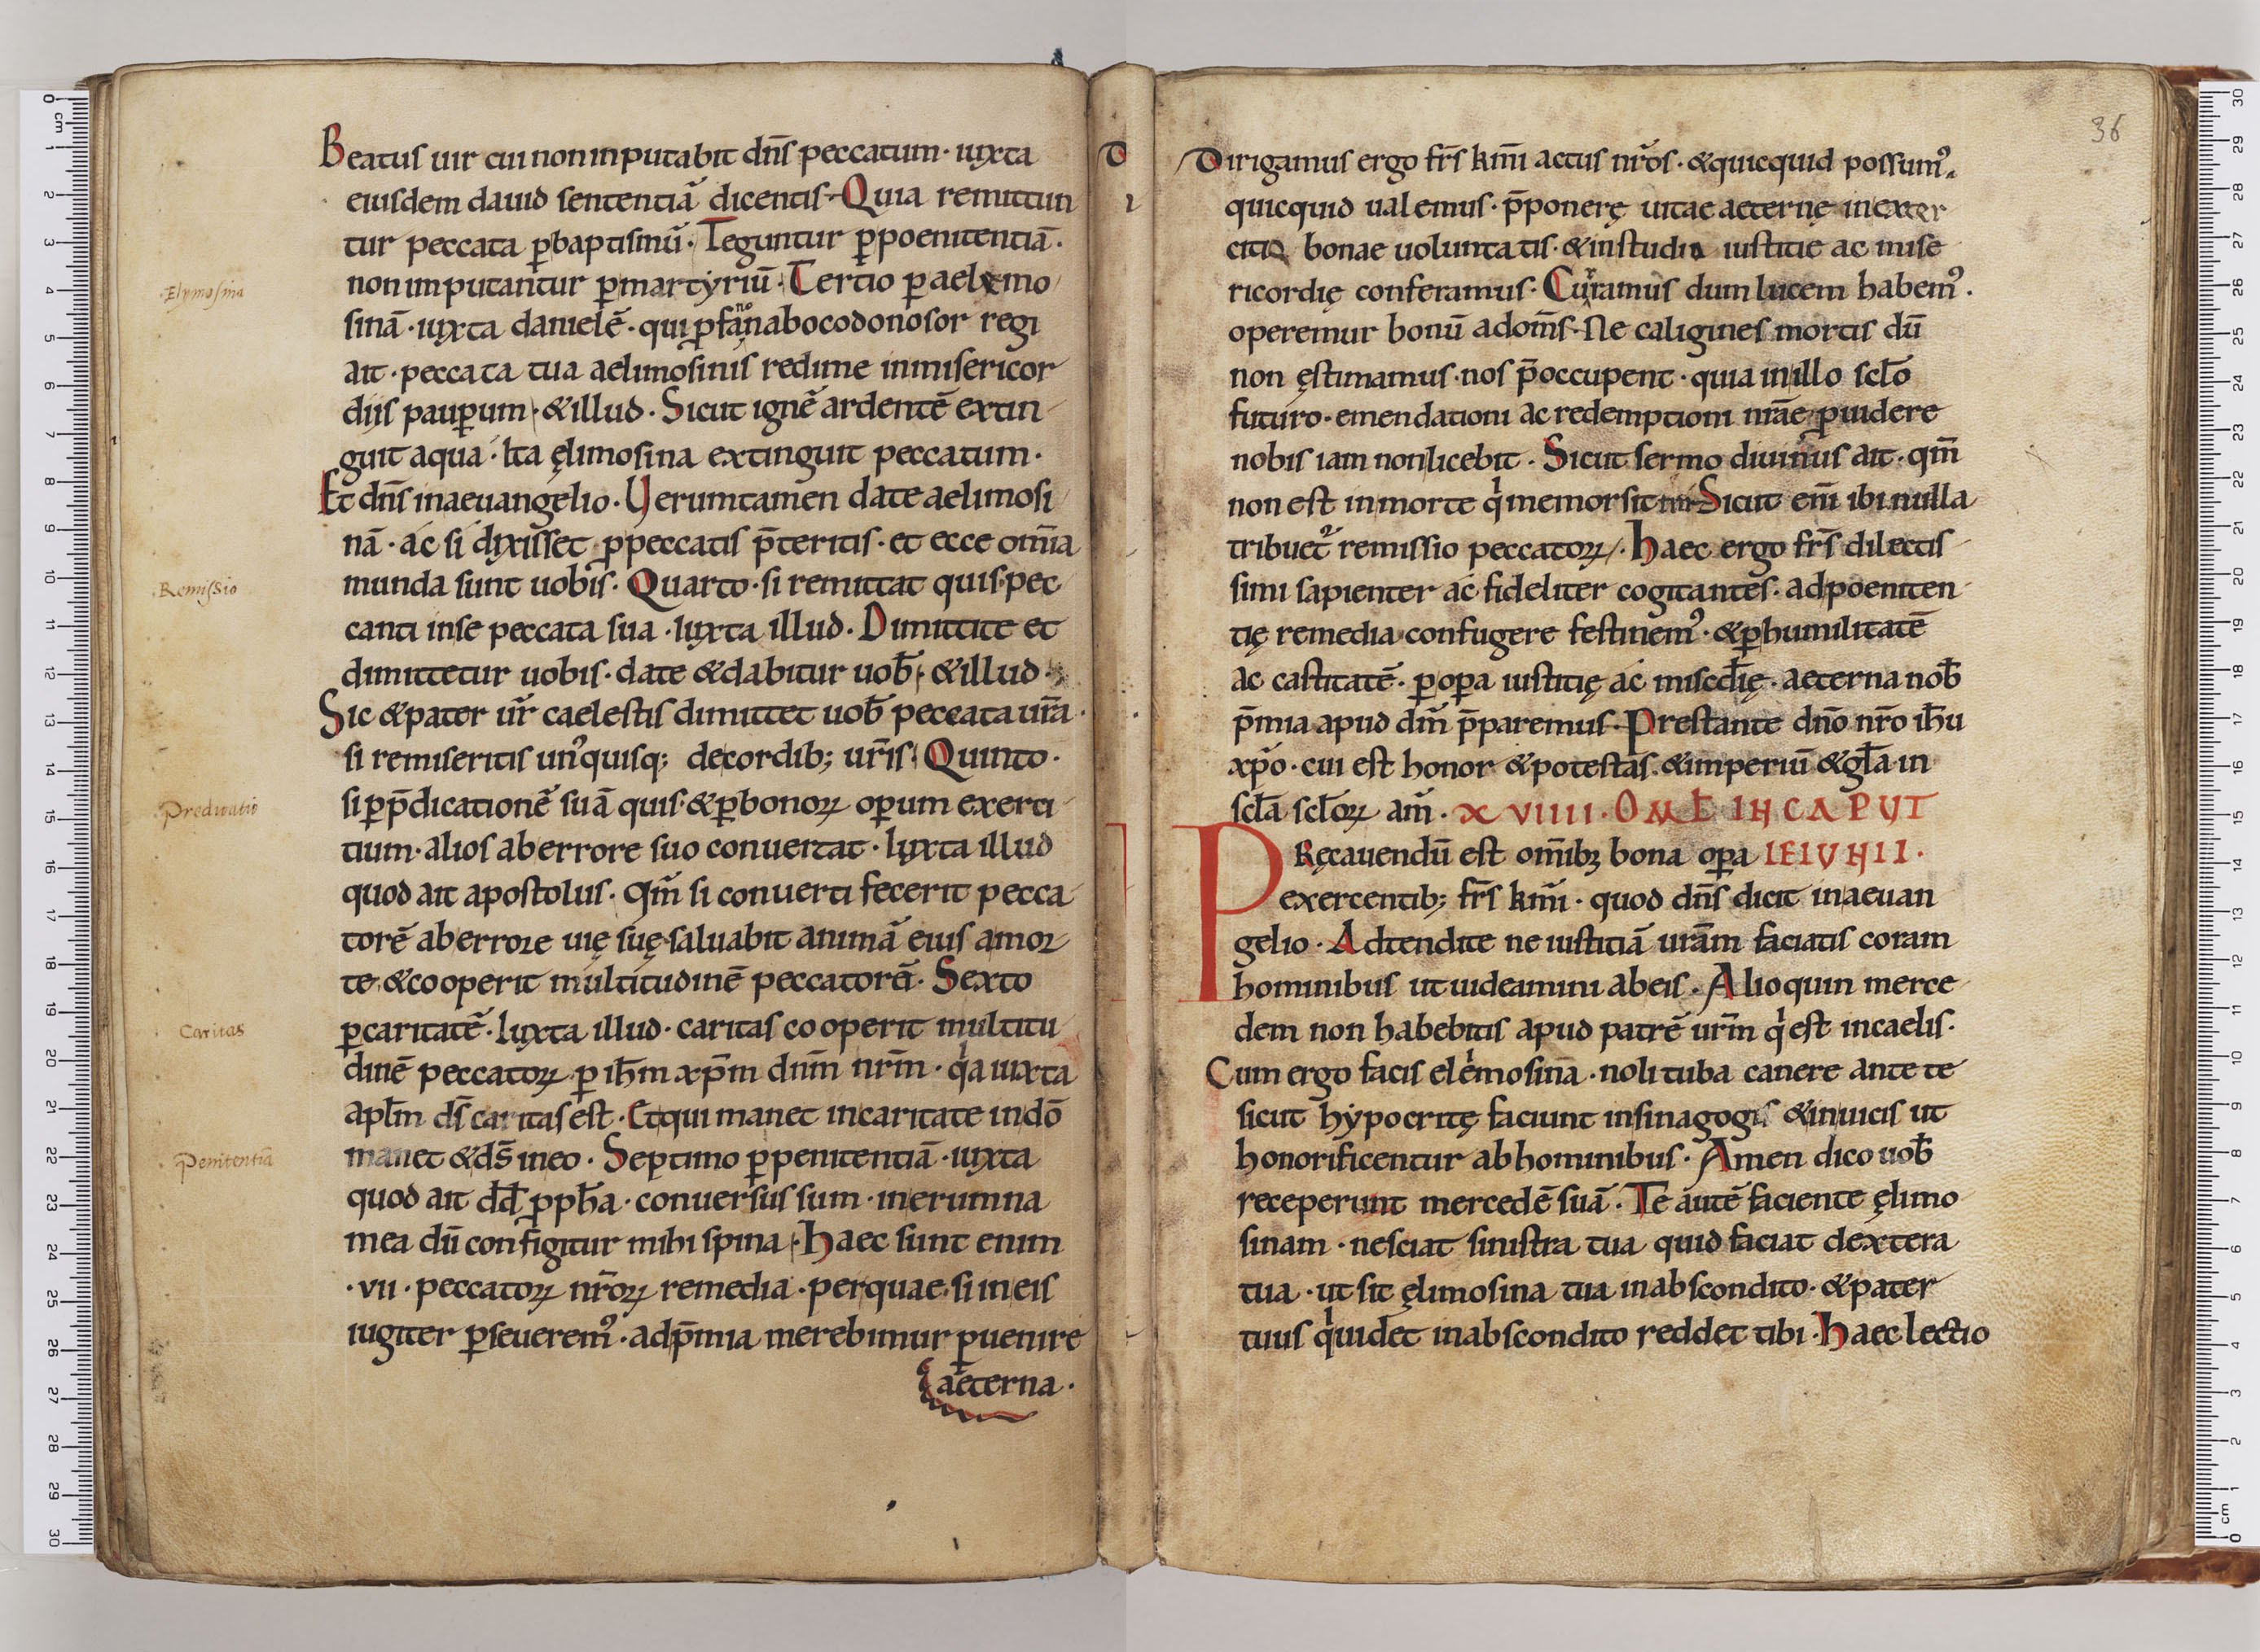 Beatus uir cui non inputabit dn̄s peccatum · iuxta
eiusdem dauid sententiā dicentis · Quia remittun
tur peccata ꝑ baptismū · Teguntur ꝑ poenitentiā ·
non imputantur ꝑ martyriū · Tertio ꝑ aelemo
Elymosina
sinā · iuxta danielē · qui nabocodonosor regi
ait · peccata tua aelimosinis redime in misericor
diis pauꝑum · & illud · Sicut ignē ardentē extin
guit aqua · Ita ęlimosina extinguit peccatum ·
Et dn̄s in aeuangelio · Verumtamen date aelimosi
nā · ac si dixisset ꝓ peccatis p̄teritis · et ecce om̄ia
munda sunt uobis · Quarto · si remittat quis pec
Remissio
canti in se peccata sua · Iuxta illud · Dimittite et
dimittetur uobis · date & dabitur uob̄ · & illud ·
Sic & pater ur̄ caelestis dimittet uob̄ peccata ur̄a ·
si remiseritis unꝰquisq; de cordib; ur̄is · Quinto ·
si ꝑ p̄dicationē suā quis · & ꝑ bonoꝝ oꝑum exerci
Predicatio
tium · alios ab errore suo conuertat · Iuxta illud
quod ait apostolus · Qm̄ si conuerti fecerit pecca
torē ab errore uię suę · saluabit animā eius a mor
te · & cooperit multitudinē peccatorē · Sexto
ꝑ caritatē · Iuxta illud · caritas cooperit multitu
Caritas
dinē peccatoꝝ ꝑ ih̄m xp̄m dnm̄ nr̄m · qͥa iuxta
apl̄m ds̄ caritas est · Et qui manet in caritate in dō
manet & ds̄ in eo · Septimo ꝑ penitentiā · iuxta
Penitentiā
quod ait dd̄ ꝓph̄a · conuersus sum · in erumna
mea dū configitur mihi spina · Haec sunt enim
· vii · peccatoꝝ nr̄oꝝ remedia · per quae · si in eis
iugiter ꝑseueremꝰ · ad p̄mia merebimur ꝑuenire
aeterna ·
36
Dirigamus ergo frs̄ km̄i actus nr̄os · & quicquid possumꝰ
quicquid ualemus · p̄ponerę uitae aeternę in exer
citio bonae uoluntatis · & in studio iustitię ac mise
ricordię conferamus · Curramus dum lucem habemꝰ ·
operemur bonū ad om̄s · Ne caligines mortis dū
non ęstimamus · nos p̄occupent · quia in illo scl̄o
futuro · emendationi ac redemptioni nr̄ae ꝓuidere
nobis iam non licebit · Sicut sermo diuinus ait · qm̄
non est in morte qͥ memor sit tui · Sicut eni̅ ibi nulla
tribuet᷑ remissio peccatoꝝ · Haec ergo frs̄ dilectis
simi sapienter ac fideliter cogitantes · ad poeniten
tię remedia confugere festinemꝰ · & ꝑ humilitatē
ac castitatē · ꝑ oꝑa iustitię ac misc̄dię · aeterna nob̄
p̄mia apud dm̄ p̄paremus · Prestante dn̄o nr̄o ih̄u
xp̄o · cui est honor & potestas · & imperiū & gl̄a in
scl̄a scl̄oꝝ am̄ · XVIIII · OML̄ IN CAPUT
PRęcauendū est om̄ibꝫ bona oꝑa IEIUNII ·
exercentib; frs̄ km̄i · quod dn̄s dicit in aeuan
gelio · Adtendite ne iustitiā urām faciatis coram
hominibus ut uideamini ab eis · Alioquin merce
dem non habebitis apud patrē ur̄m qͥ est in caelis ·
Cum ergo facis elemosinā · noli tuba canere ante te
sicut hypocritę faciunt in sinagogis & in uicis ut
honorificentur ab hominibus · Amen dico uob̄
receperunt mercedē suā · Te autē faciente ęlimo
sinam · nesciat sinistra tua quid faciat dextera
tua · ut sit ęlimosina tua in abscondito · & pater
tuus qͥ uidet in abscondito reddet tibi · Haec lectio